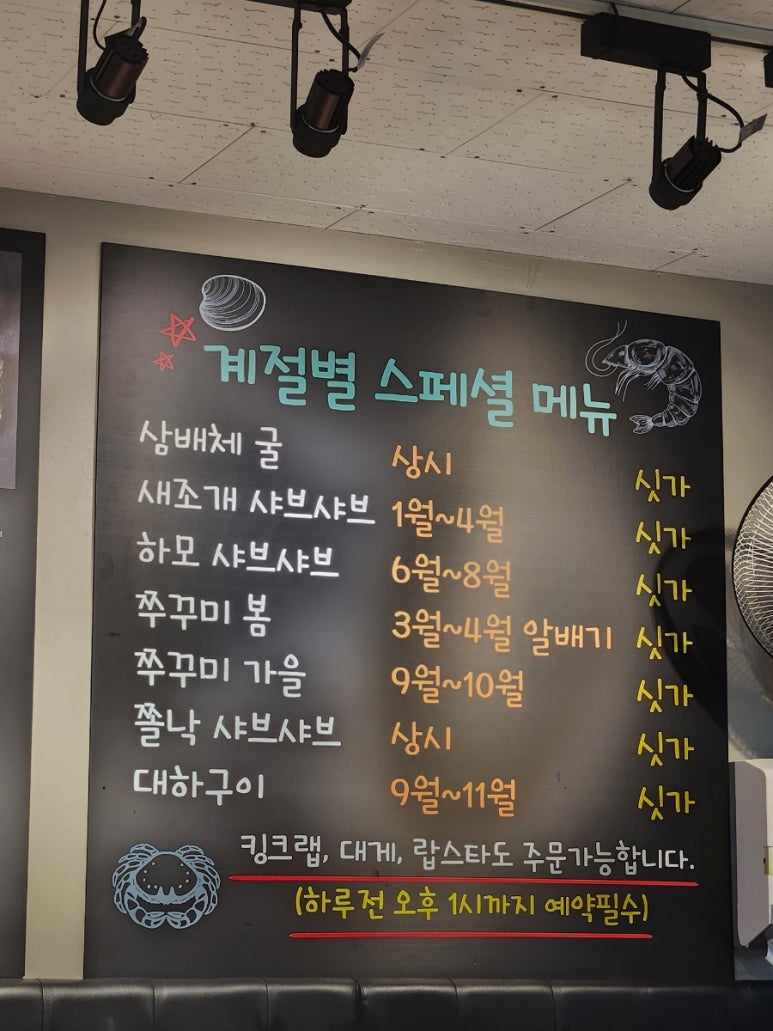 계절별 스페셜 메뉴
삼배체 굴 상시 싯가
새조개 샤브샤브 1월~4월 싯가
하모 샤브샤브 6월~8월 싯가
쭈꾸미 봄 3월~4월 알배기 싯가
쭈꾸미 가을 9월~10월 싯가
쫄낙 샤브샤브 상시 싯가
대하구이 9월~11월 싯가
킹크랩, 대게, 랍스타도 주문가능합니다.
(하루전 오후 1시까지 예약필수)